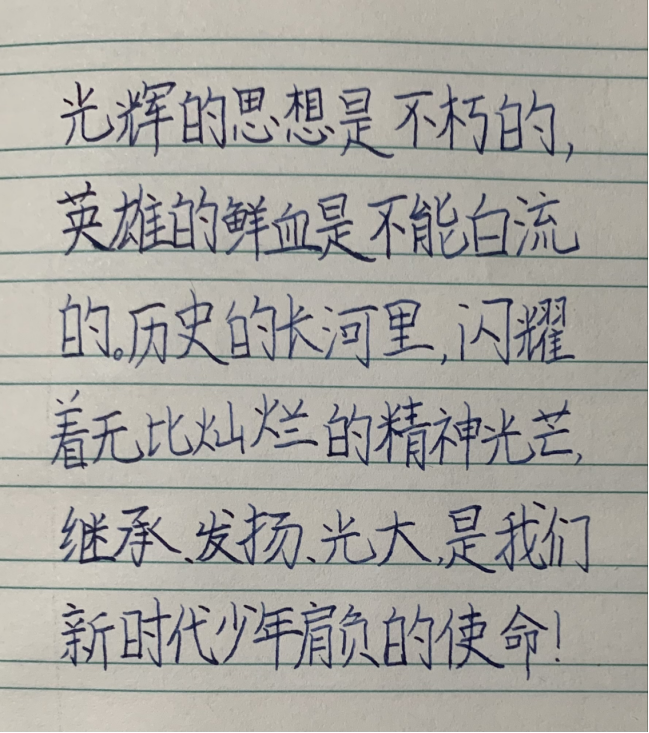 光辉的思想是不朽的,
英雄的鲜血是不能白流
的。历史的长河里,闪耀
着无比灿烂的精神光芒,
继承、发扬、光大,是我们
新时代少年肩负的使命!